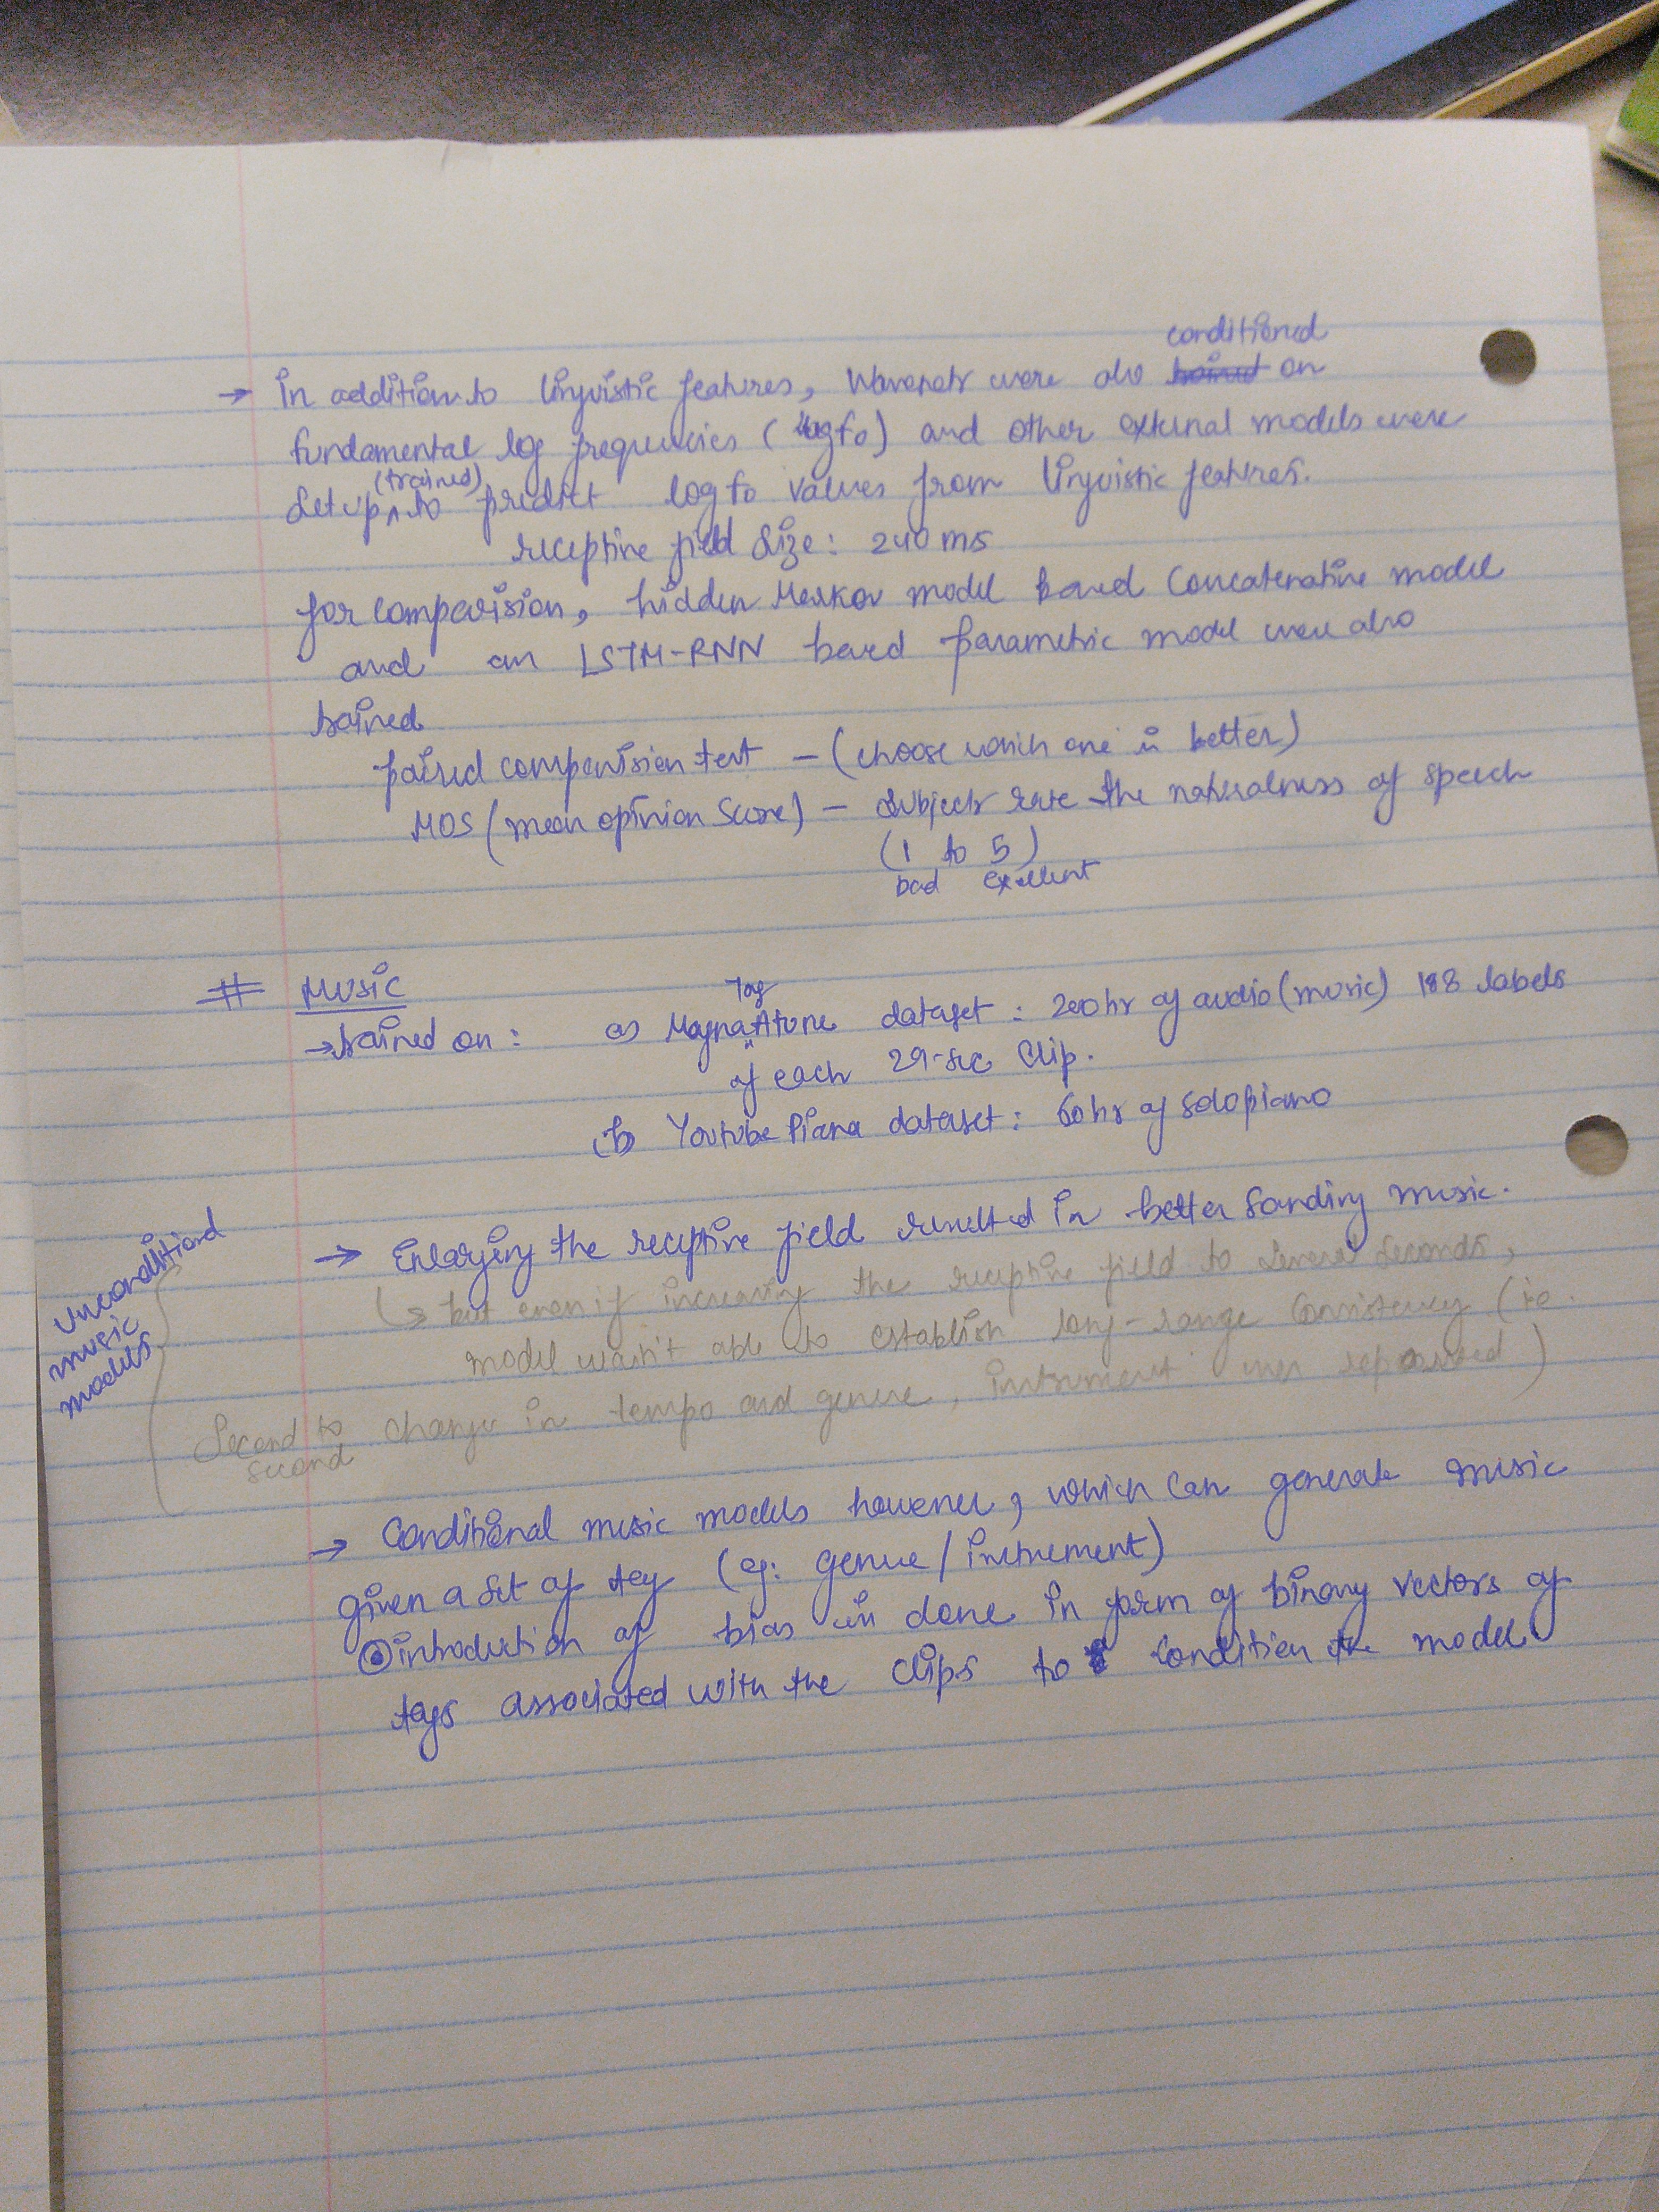 conditioned
→ In addition to linguistic features, Wavenets were also trained on
fundamental log frequencies (logf0) and other external models were
(trained)
setup ^ to predict logf0 values from linguistic features.
receptive field size: 240 ms
for comparision, hidden Markov model based Concatenative model
and an LSTM-RNN based parametric model were also
trained
paired comparision test - (choose which one is better)
MOS (mean opinion score) - subjects rate the naturalness of speech
(1 to 5)
bad excellent
# MUSIC
Tag
→ trained on: a) MagnaAtune dataset: 200hr of audio (music) 188 labels
of each 29-sec clip.
(b) Youtube Piano dataset: 60hr of solo piano
Unconditional
music
models
→ Enlarging the receptive field resulted in better sounding music.
↳ but even if increasing the receptive field to several seconds,
model wasn't able to establish long-range consistency (ie.
Second to
second
change in tempo and genre, instrument was reported)
→ Conditional music models however, which can generate music
given a set of tag (eg: genre/instrument)
introduction of bias is done in form of binary vectors of
tags associated with the clips to condition the model